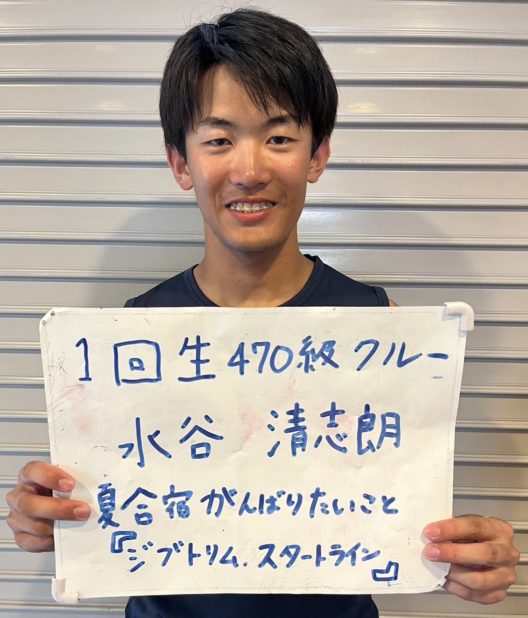 1回生 470級 クルー
水谷 清志朗
夏合宿 がんばりたいこと
『ジブトリム. スタートライン』